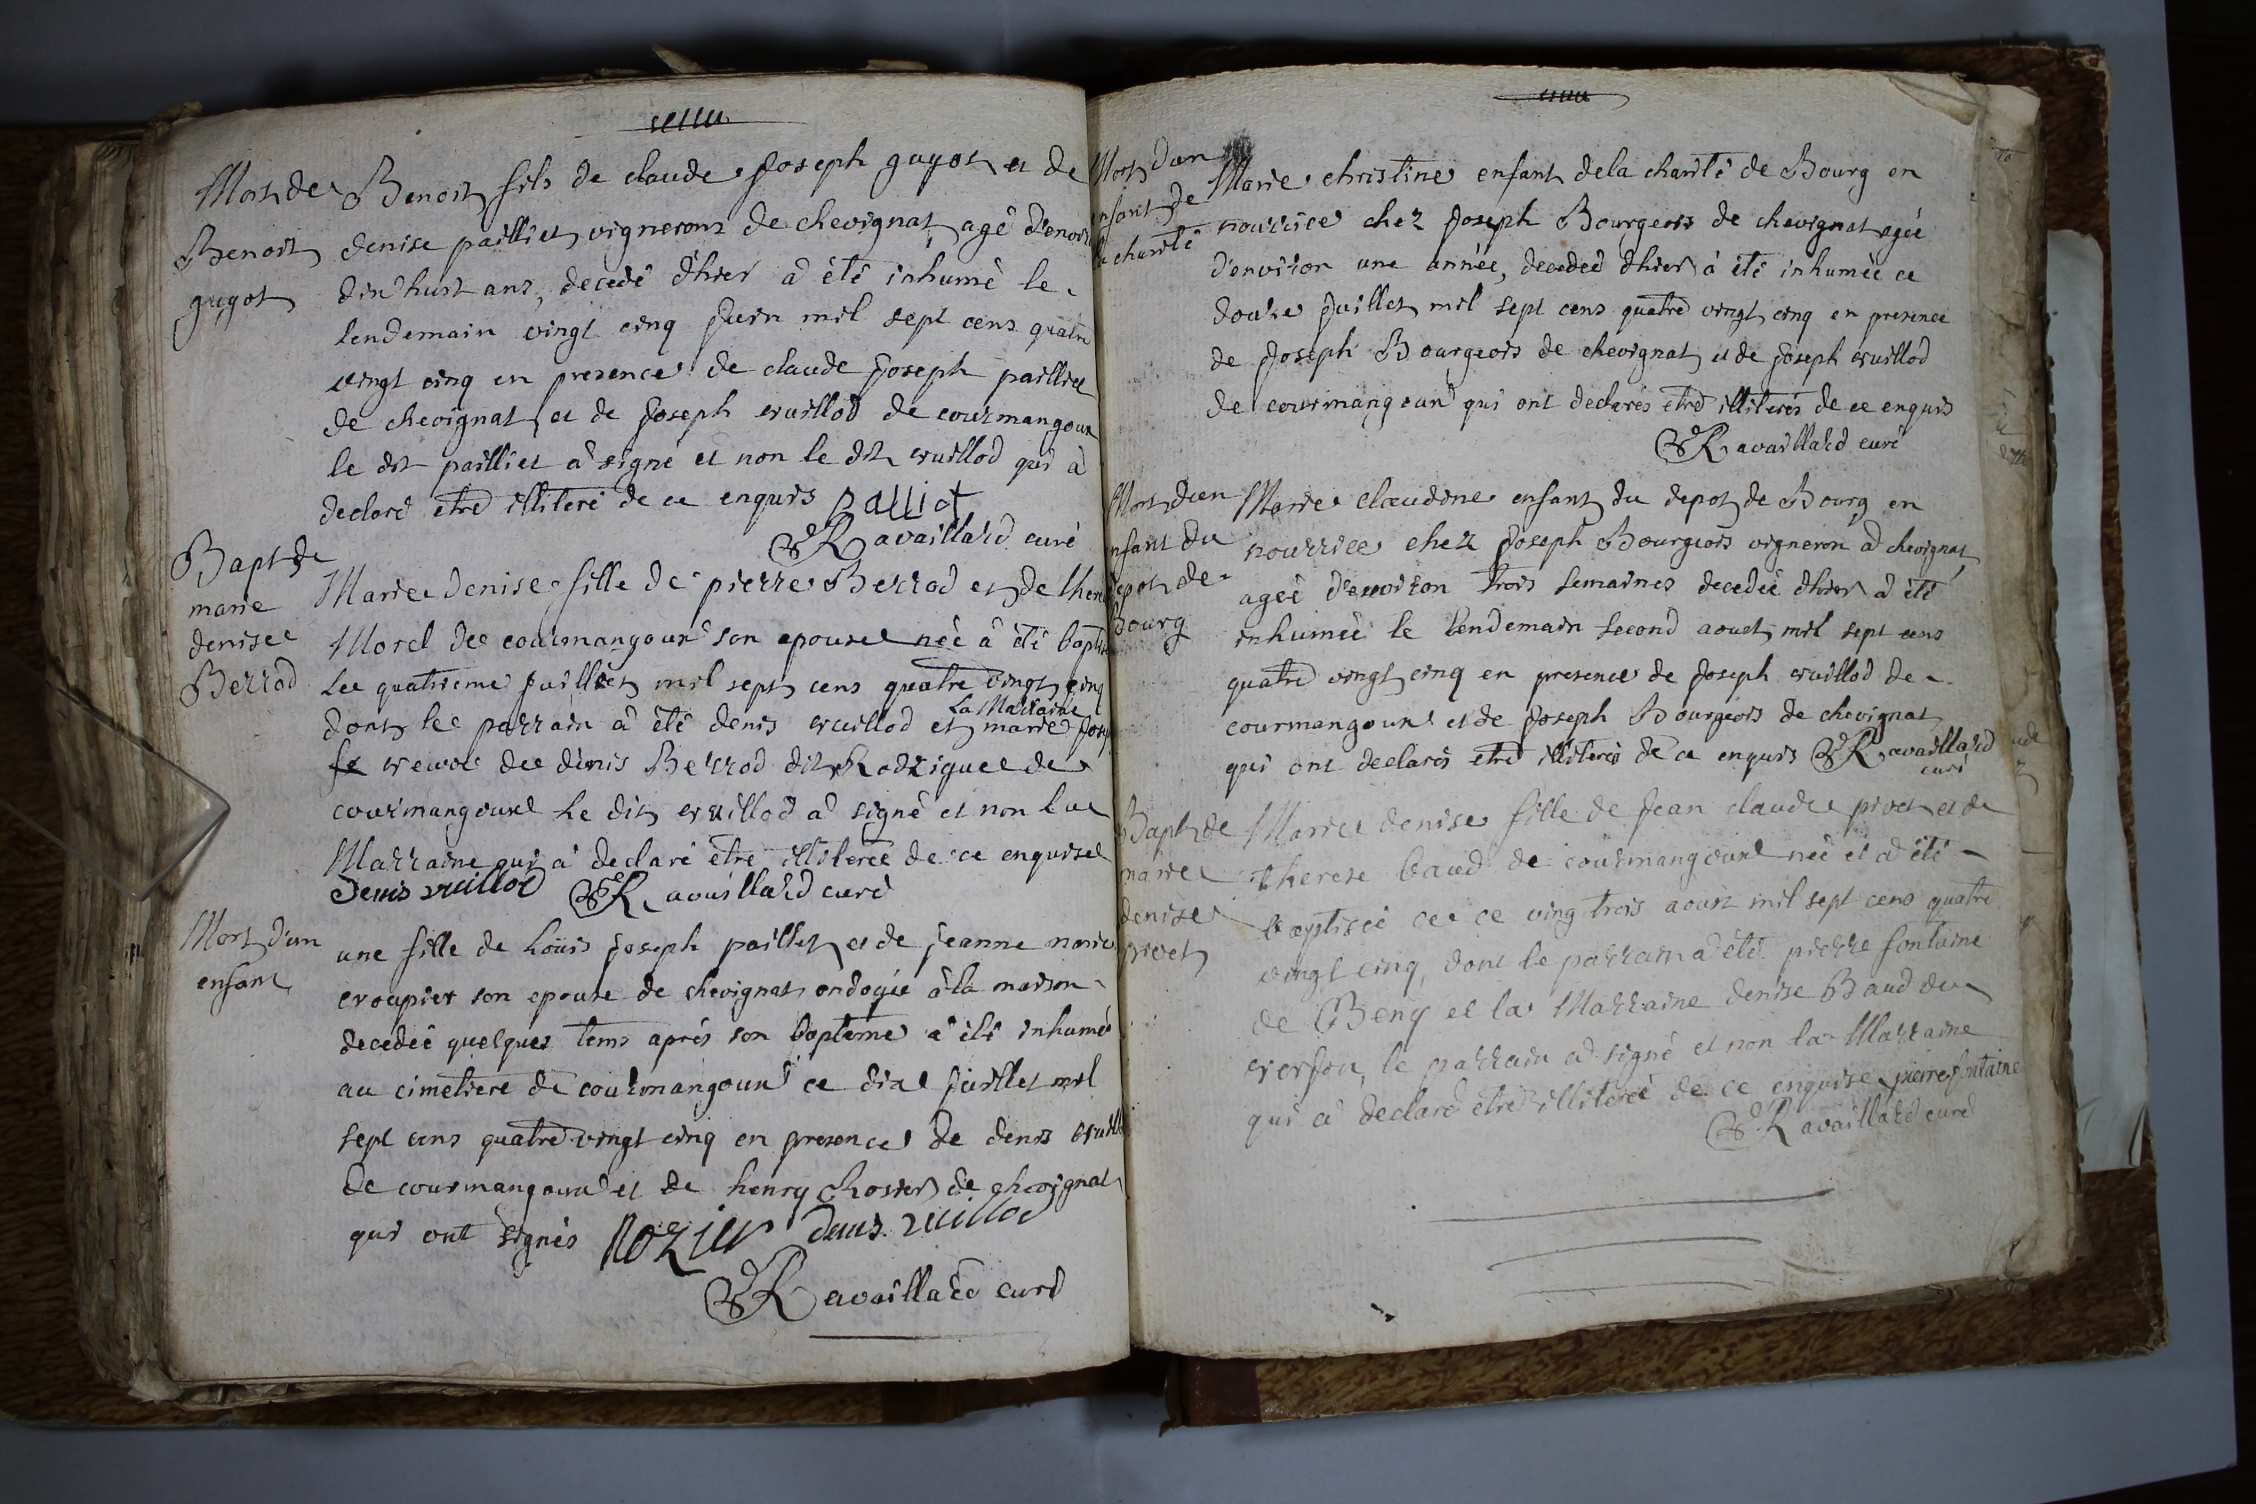 Mort de
Benoit
guyot
Benoit fils de claude Joseph guyot et de
denise pailliet vignerons de chevignat agé d'environ
dix huit ans, decedé d'hier a été inhumé le
lendemain vingt cinq Juin mil sept cens quatre
vingt cinq en presence de claude Joseph pailliet
de chevignat et de Joseph vuillod de courmangoux
le dit pailliet a signé et non le dit vuillod qui a
declaré etre illiteré de ce enquis palliot
Ravaillard curé
Bapt de
marie
denise
Berrod
Marie denise fille de pierre Berrod et de
Morel de courmangoux son epouse née a été
le quatrieme Juillet mil sept cens quatre vingt cinq
dont le parrain a été denis vuillod et la Marraine marie
veuve de denis Berrod dit Rodrigue de
courmangoux le dit vuillod a signé et non la
Marraine qui a declaré etre illiterée de ce enquise
Denis vuillod Ravaillard curé
Mort d'un
enfant
une fille de Louis Joseph paillet et de Jeanne marie
croupier son epouse de chevignat ondoyée a la maison
decedée quelques tems aprés son bapteme a été inhumé
au cimetiere de courmangoux ce dix Juillet mil
sept cens quatre vingt cinq en presence de denis
de courmangoux et de henry Rosier de chevignat
qui ont signés Rozier denis vuillod
Ravaillard curé
Mort d'un
enfant de
la charité
Marie christine enfant de la charité de Bourg en
nourrice chez Joseph Bourgeois de chevignat agée
d'environ une année, decedée d'hier a été inhumée ce
douze Juillet mil sept cens quatre vingt cinq en presence
de Joseph Bourgeois de chevignat et de Joseph vuillod
de courmangoux qui ont declarés etre illiterés de ce enquis
Ravaillard curé
Mort d'un
enfant du
depot de
Bourg
Marie claudine enfant du depot de Bourg en
nourrice chez Joseph Bourgeois vigneron a chevignat
agée d'environ trois semaines decedée d'hier a été
inhumée le lendemain second aoust mil sept cens
quatre vingt cinq en presence de Joseph vuillod de
courmangoux et de Joseph Bourgeois de chevignat
qui ont declarés etre illiterés de ce enquis Ravaillard
curé
Bapt de
marie
denise
pivet
Marie denise fille de Jean claude pivet et de
therese baud de courmangoux née et a été
baptisée ce ving trois aoust mil sept cens quatre
vingt cinq, dont le parrain a été pierre fontaine
de Beny et la Marraine denise Baud de
verfou, le parrain a signé et non la Marraine
qui a declaré etre illiterée de ce enquise pierre fontaine
Ravaillard curé